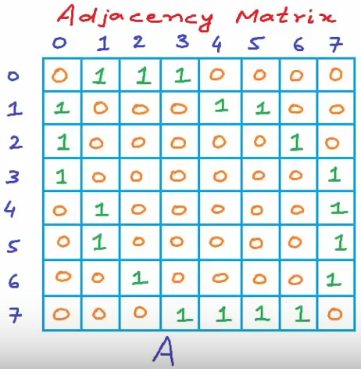 Adjacency Matrix
0 1 2 3 4 5 6 7
0 0 1 1 1 0 0 0 0
1 1 0 0 0 1 1 0 0
2 1 0 0 0 0 0 1 0
3 1 0 0 0 0 0 0 1
4 0 1 0 0 0 0 0 1
5 0 1 0 0 0 0 0 1
6 0 0 1 0 0 0 0 1
7 0 0 0 1 1 1 1 0
A